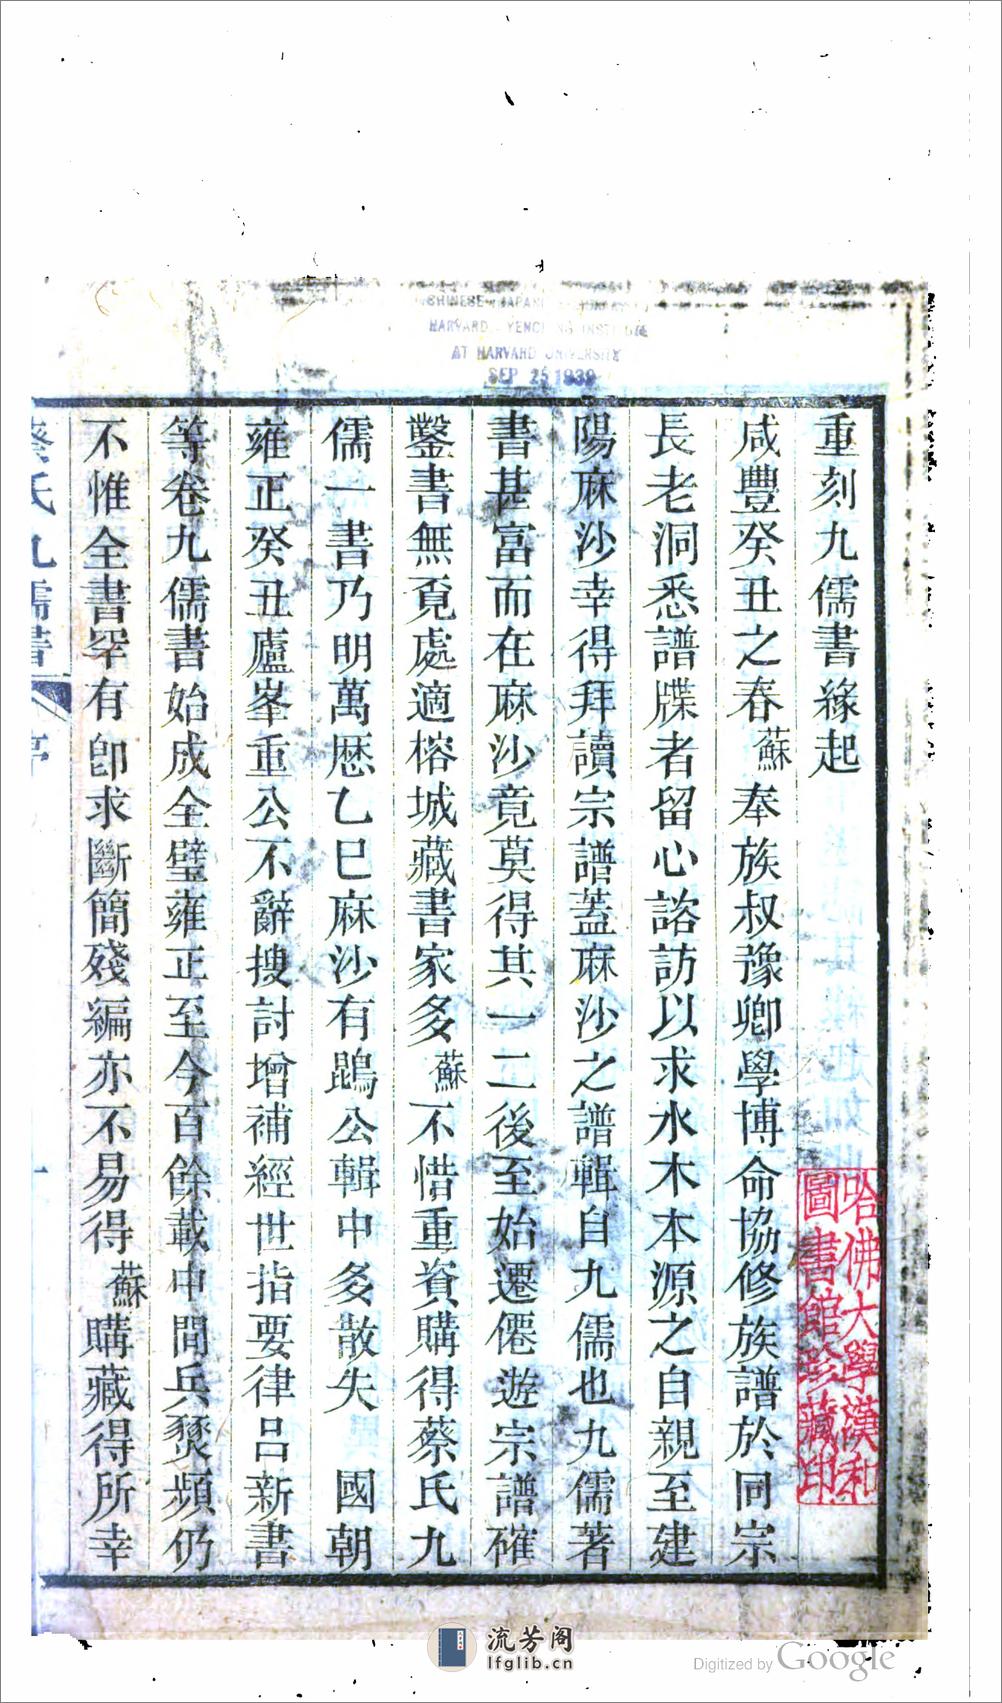 重刻九儒書緣起
咸豐癸丑之春蘇奉族叔豫卿學博命協修族譜於同宗
長老洞悉譜牒者留心諮訪以求水木本源之自親至建
陽麻沙幸得拜讀宗譜蓋麻沙之譜輯自九儒也九儒著
書甚富而在麻沙竟莫得其一二後至始遷僊遊宗譜確
鑿書無覔處適榕城藏書家多蘇不惜重貲購得蔡氏九
儒一書乃明萬厯乙巳麻沙有鵾公輯中多散失 國朝
雍正癸丑廬峯重公不辭搜討增補經世指要律呂新書
等卷九儒書始成全璧雍正至今百餘載中間兵燹頻仍
不惟全書罕有卽求斷簡殘編亦不易得蘇購藏得所幸
蔡氏九儒書 序
哈佛大學漢和
圖書館珍藏印
CHINESE-JAPAN
HARVARD-YENCHING INSTITUTE
AT HARVARD UNIVERSITY
SEP 25 1939
流芳阁
lfglib.cn
Digitized by Google